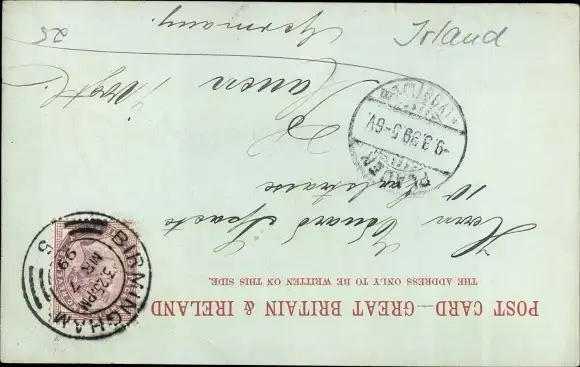 POST CARD—GREAT BRITAIN & IRELAND
THE ADDRESS ONLY TO BE WRITTEN ON THIS SIDE.
BIRMINGHAM
3.25 PM
MR 7
99
5
Herrn Eduard
10
PLAUEN
-9.3.99.5-6V.
Plauen
i/Vogtl.
Germany.
25
Irland